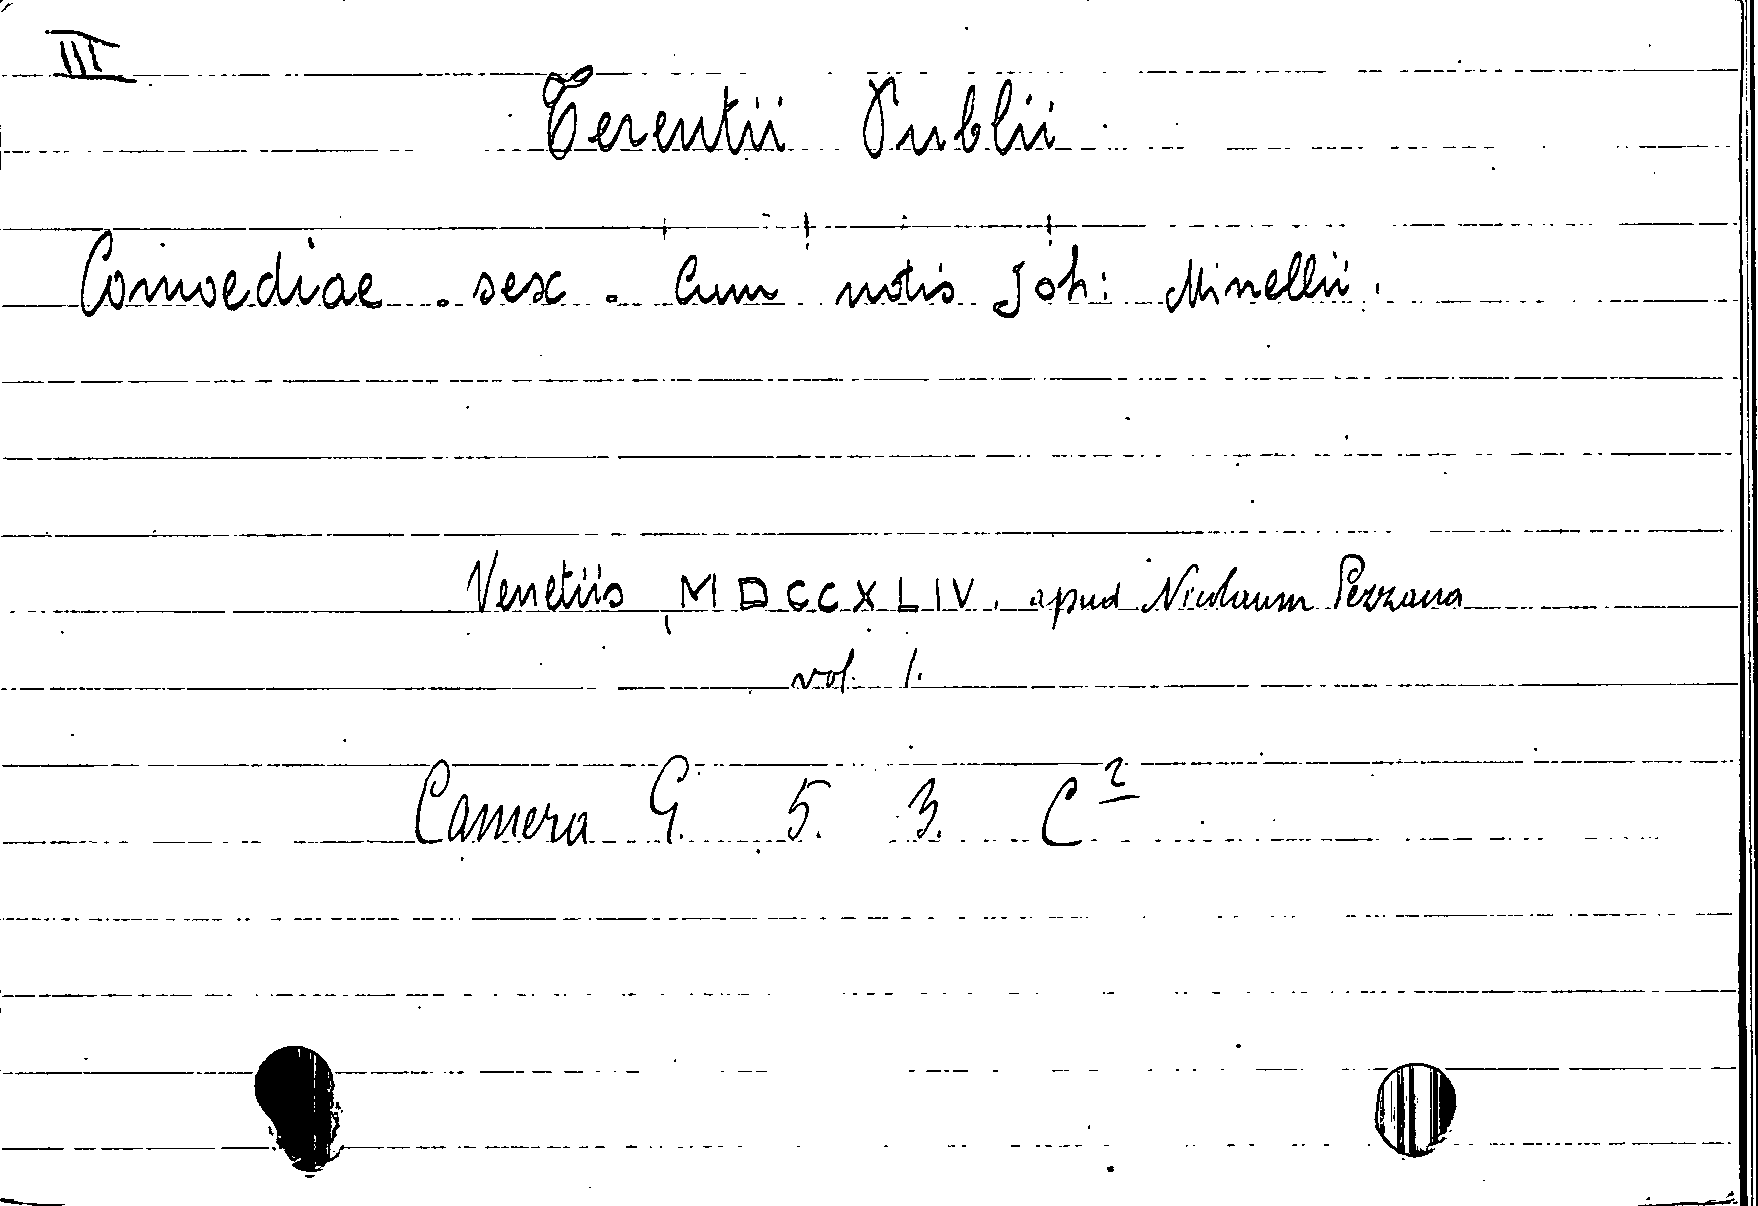 III
Terentii Publii
Comoediae. sex. Cum notis Joh: Minellii.
Venetiis MDCCXLIV. apud Nicolaum Pezzana
vol. 1.
Camera G. 5. 3. C2